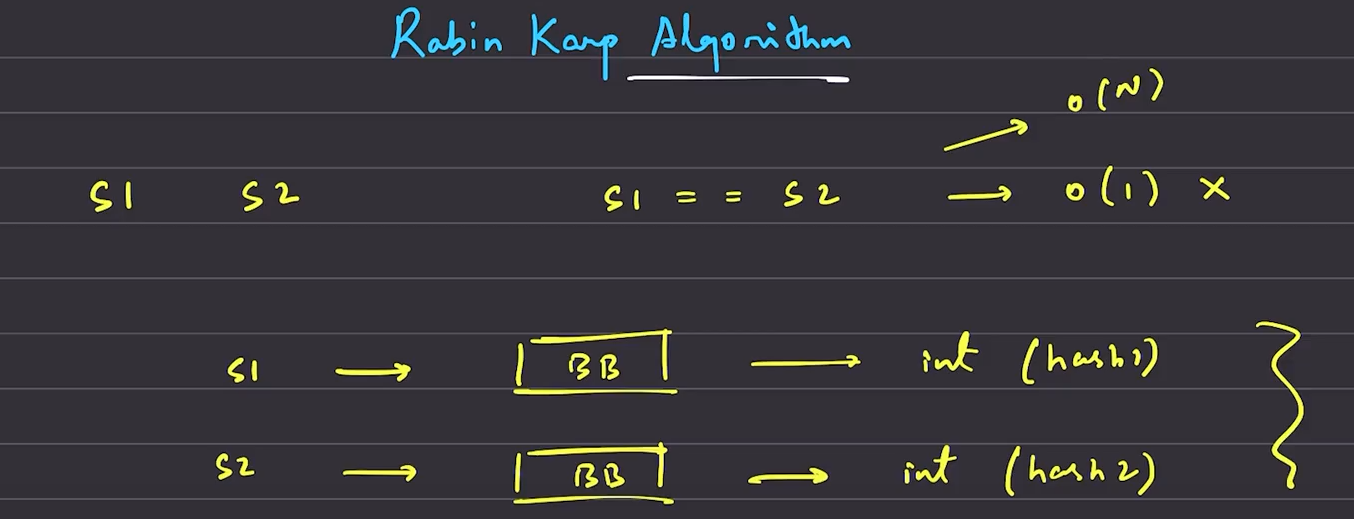 Rabin Karp Algorithm
O(N)
S1 S2 S1 == S2 → O(1) ×
S1 → BB → int (hash1)
S2 → BB → int (hash2)